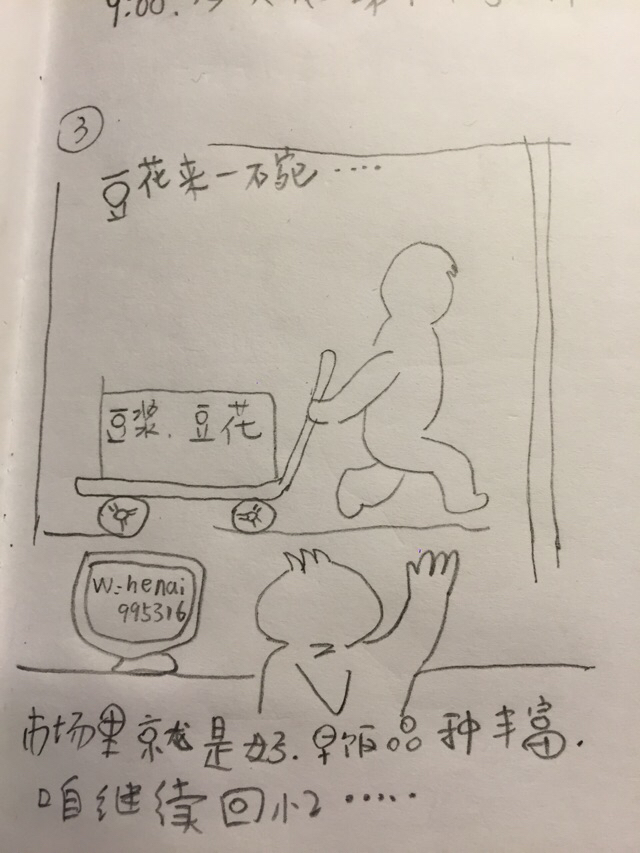 9:00.
③
豆花来一碗····
豆浆.豆花
W=henai
995316
市场里就是好.早饭品种丰富.
咱继续回忆·····